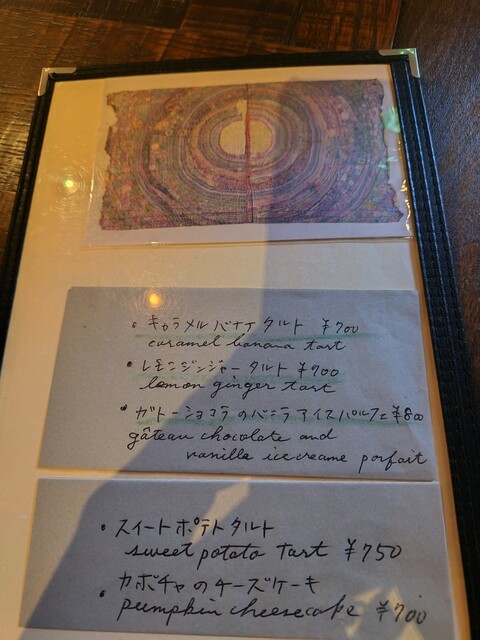 • キャラメルバナナタルト ¥700
caramel banana tart
• レモンジンジャータルト ¥700
lemon ginger tart
• ガトーショコラのバニラアイスパルフェ ¥800
gâteau chocolate and
vanilla icecreame parfait
• スイートポテトタルト
sweet potato tart ¥750
• カボチャのチーズケーキ
pumpkin cheesecake ¥700